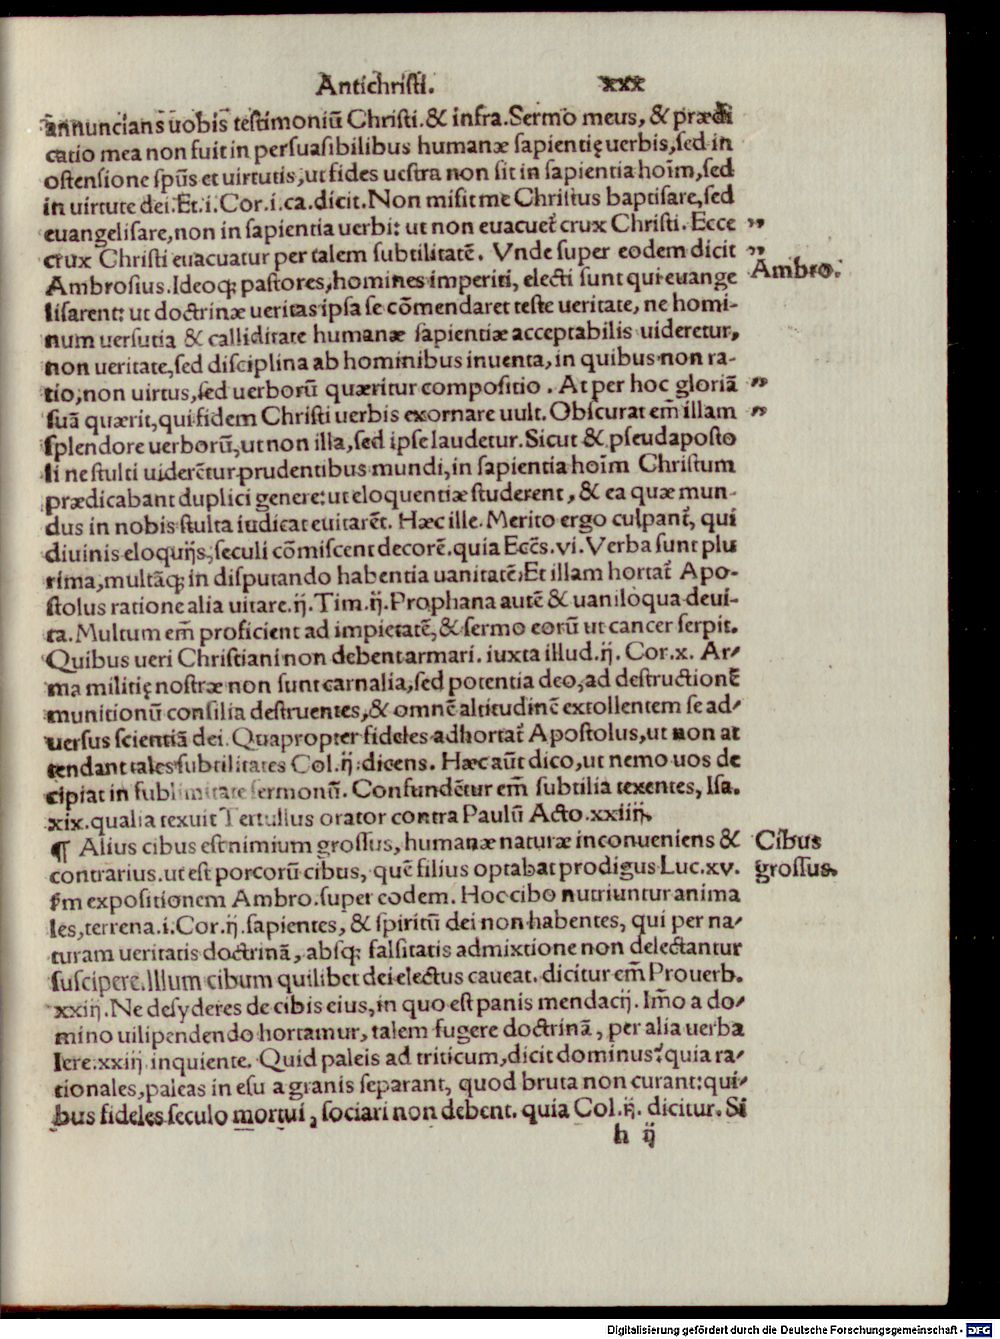 Antichristi. xxx
annuncians uobis testimoniū Christi. & infra. Sermo meus, & prædi
catio mea non fuit in persuasibilibus humanæ sapientię uerbis, sed in
ostensione spūs et uirtutis, ut fides uestra non sit in sapientia hoīm, sed
in uirtute dei. Et. i. Cor. i. ca. dicit. Non misit me Christus baptisare, sed
euangelisare, non in sapientia uerbi: ut non euacuet̄ crux Christi. Ecce „
crux Christi euacuatur per talem subtilitatē. Vnde super eodem dicit „
Ambro.
Ambrosius. Ideoq; pastores, homines imperiti, electi sunt qui euange
lisarent: ut doctrinæ ueritas ipsa se cōmendaret teste ueritate, ne homi-
num uersutia & calliditate humanæ sapientiæ acceptabilis uideretur,
non ueritate, sed disciplina ab hominibus inuenta, in quibus non ra-
tio, non uirtus, sed uerborū quæritur compositio. At per hoc gloriā „
suā quærit, qui fidem Christi uerbis exornare uult. Obscurat em̄ illam „
splendore uerborū, ut non illa, sed ipse laudetur. Sicut & pseudaposto
li ne stulti uiderētur prudentibus mundi, in sapientia hoīm Christum
prædicabant duplici genere: ut eloquentiæ studerent, & ea quæ mun-
dus in nobis stulta iudicat euitarēt. Hæc ille. Merito ergo culpant̄, qui
diuinis eloquijs, seculi cōmiscent decorē. quia Eccēs. vi. Verba sunt plu
rima, multāq; in disputando habentia uanitatē. Et illam hortat̄ Apo-
stolus ratione alia uitare. ij. Tim. ij. Prophana autē & uaniloqua deui-
ta. Multum em̄ proficient ad impietatē, & sermo eorū ut cancer serpit.
Quibus ueri Christiani non debent armari. iuxta illud. ij. Cor. x. Ar-
ma militię nostræ non sunt carnalia, sed potentia deo, ad destructionē
munitionū consilia destruentes, & omnē altitudinē extollentem se ad-
uersus scientiā dei. Quapropter fideles adhortat̄ Apostolus, ut non at
tendant tales subtilitates Col. ij. dicens. Hæc aūt dico, ut nemo uos de
cipiat in sublimitate sermonū. Confundētur em̄ subtilia texentes, Isa.
xix. qualia texuit Tertullus orator contra Paulū Acto. xxiiij.
¶ Alius cibus est nimium grossus, humanæ naturæ inconueniens &
Cibus
grossus.
contrarius. ut est porcorū cibus, quē filius optabat prodigus Luc. xv.
s̄m expositionem Ambro. super eodem. Hoc cibo nutriuntur anima
les, terrena. i. Cor. ij. sapientes, & spiritū dei non habentes, qui per na-
turam ueritatis doctrinā, absq; falsitatis admixtione non delectantur
suscipere. Illum cibum quilibet dei electus caueat. dicitur em̄ Prouerb.
xxiij. Ne desyderes de cibis eius, in quo est panis mendacij. Im̄o a do-
mino uilipendendo hortamur, talem fugere doctrinā, per alia uerba
Iere. xxiij inquiente. Quid paleis ad triticum, dicit dominus? quia ra-
tionales, paleas in esu a granis separant, quod bruta non curant: qui-
bus fideles seculo mortui, sociari non debent. quia Col. ij. dicitur. Si
h ij
Digitalisierung gefördert durch die Deutsche Forschungsgemeinschaft - DFG